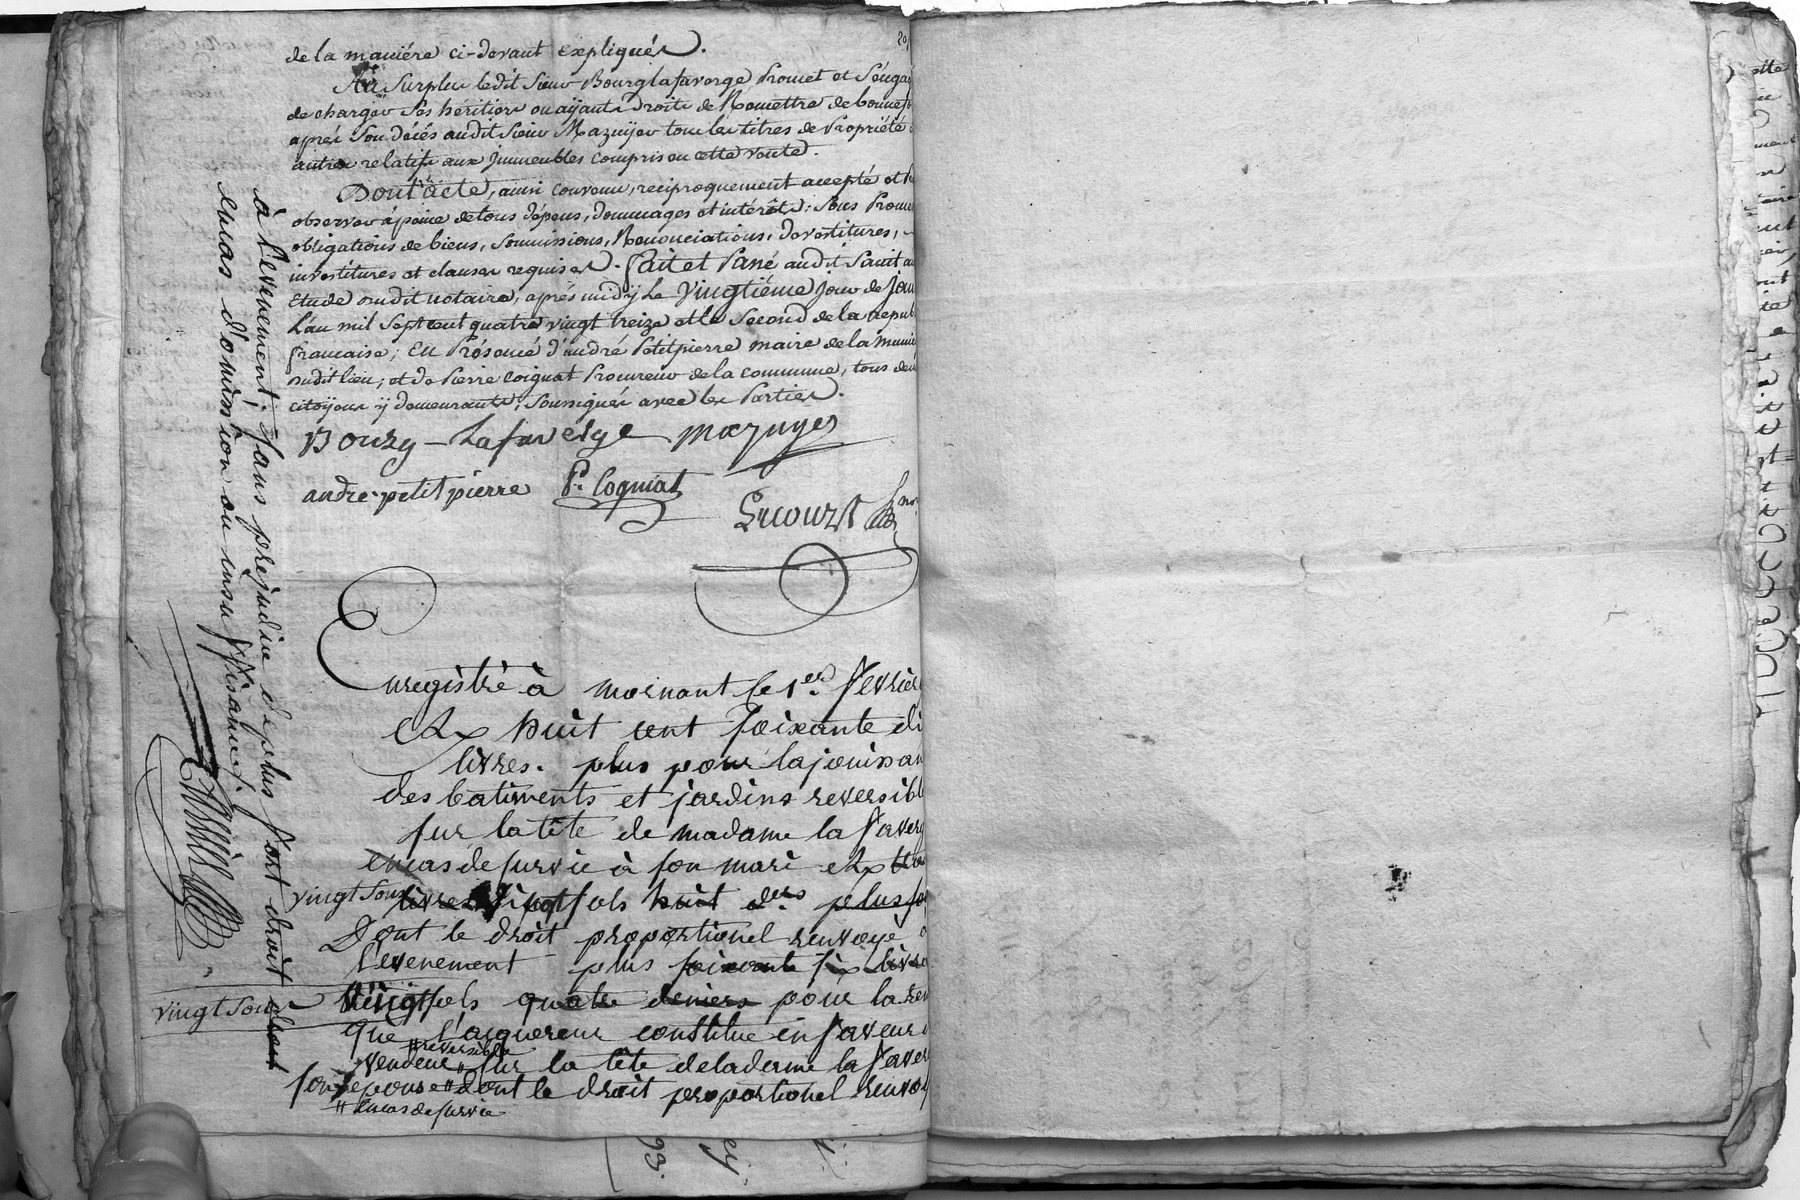 de la maniére ci-devant expliquées.
Au Surplus ledit Sieur Bourg lafaverge, Promet et S'éngage
de charger Ses héritiers ou aÿants droits de Remettre de bonne foi
aprés Son décés audit Sieur Mazuÿer tous les titres de Propriété
autres relatifs aux jmmeubles compris en cette vente.
Dont acte, ainsi convenu, reciproquement accepté et
observer à peine de tous dépens, dommages et intérêts: Sous Promes
obligations de biens, Soumissions, Renonciations, devestitures,
investitures et clauses requises. fait et Passé audit Saint
Etude dudit notaire, aprés midÿ Le Vingtiéme jour de jan
L'an mil Sept cent quatre vingt treize et le Second de la repub
francaise; En Présence d'andré Petitpierre maire de la munici
dudit lieu; et de Pierre Coignat Procureur de la commune, tous deux
citoÿens ÿ demeurants, Soussignés avec les Parties.
Bourg-Lafaverge mazuyer
andre petitpierre P. Cogniat
Lecourt
Enregistré à mornant le 1er. fevrier
huit cent soixante di
livres. plus pour la jouissan
des batiments et jardins reversible
sur la tête de madame la faverg
en cas de survie à son mari
vingt sous livres vingt sols huit ders plus
Dont le droit proportionel renvoyé
l'evenement plus soixante six livres
vingt sous vingt sols quatre deniers pour la ren
que l'acquereur constitue en faveur
vendeur reversible sur la tête de la dame la faver
son epouse dont le droit proportionel renvoy
en cas de survie
à l'evenement. sans prejudice de plus fort droit
en cas d'omission ou insuffisance
93.